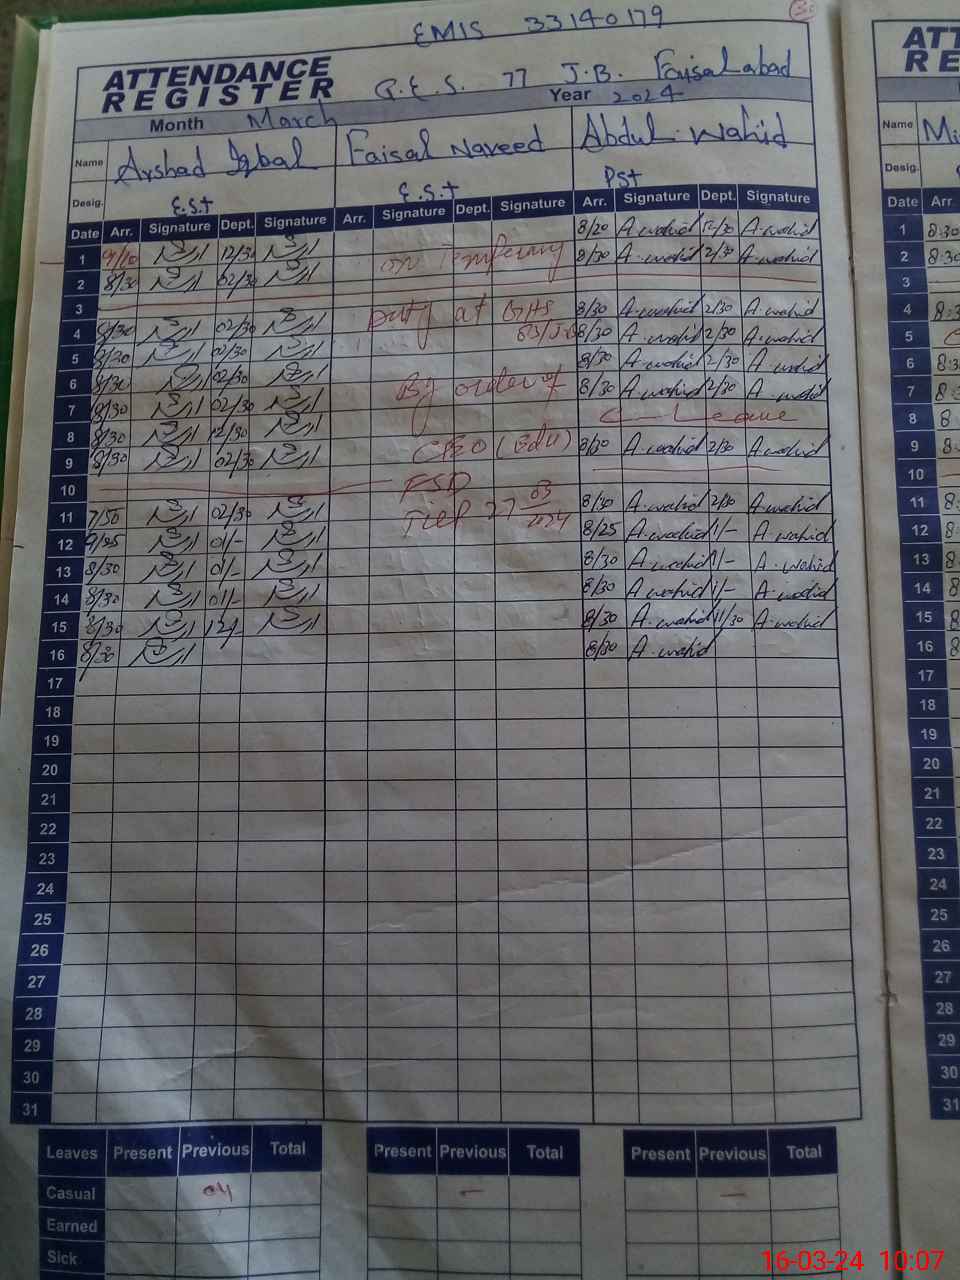 EMIS 33140179
ATTENDANCE REGISTER
G.E.S. 77 J.B. Faisalabad
Month March Year 2024
Name Arshad Iqbal Faisal Naveed Abdul Wahid
Desig. E.S.t E.S.t PSt
Date Arr. Signature Dept. Signature Arr. Signature Dept. Signature Arr. Signature Dept. Signature
1 9/10 12/30 8/20 A.wahid 12/30 A.wahid
2 8/30 02/30 on Temperary 8/30 A.wahid 2/30 A.wahid
3
4 8/30 02/30 Duty at GHS 8/30 A.wahid 2/30 A.wahid
5 8/20 02/30 8/30 A.wahid 2/30 A.wahid
6 8/30 02/30 8/30 A.wahid 2/30 A.wahid
7 8/30 02/30 By order of 8/30 A.wahid 2/30 A.wahid
8 8/30 12/30 C- Leave
9 8/30 02/30 CEO (Edu) 8/30 A.wahid 2/30 A.wahid
10 FSD
11 7/50 02/30 03 2024 8/30 A.wahid 2/30 A.wahid
12 01/- 8/25 A.wahid 1/- A.wahid
13 8/30 01/- 8/30 A.wahid 1/- A.wahid
14 8/30 01/- 8/30 A.wahid 1/- A.wahid
15 8/30 12/- 8/30 A.wahid 11/30 A.wahid
16 8/30 8/30 A.wahid
17
18
19
20
21
22
23
24
25
26
27
28
29
30
31
Leaves Present Previous Total Present Previous Total Present Previous Total
Casual 04 - -
Earned
Sick
ATT
RE
Name Mi
Desig.
Date Arr.
1 8:30
2 8:30
3
4
5
6
7
8
9
10
11
12
13
14
15
16
17
18
19
20
21
22
23
24
25
26
27
28
29
30
31
16-03-24 10:07